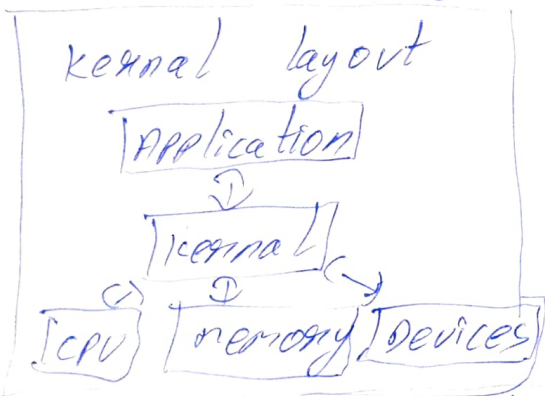 kernal layout
Application
kernal
CPU memory Devices